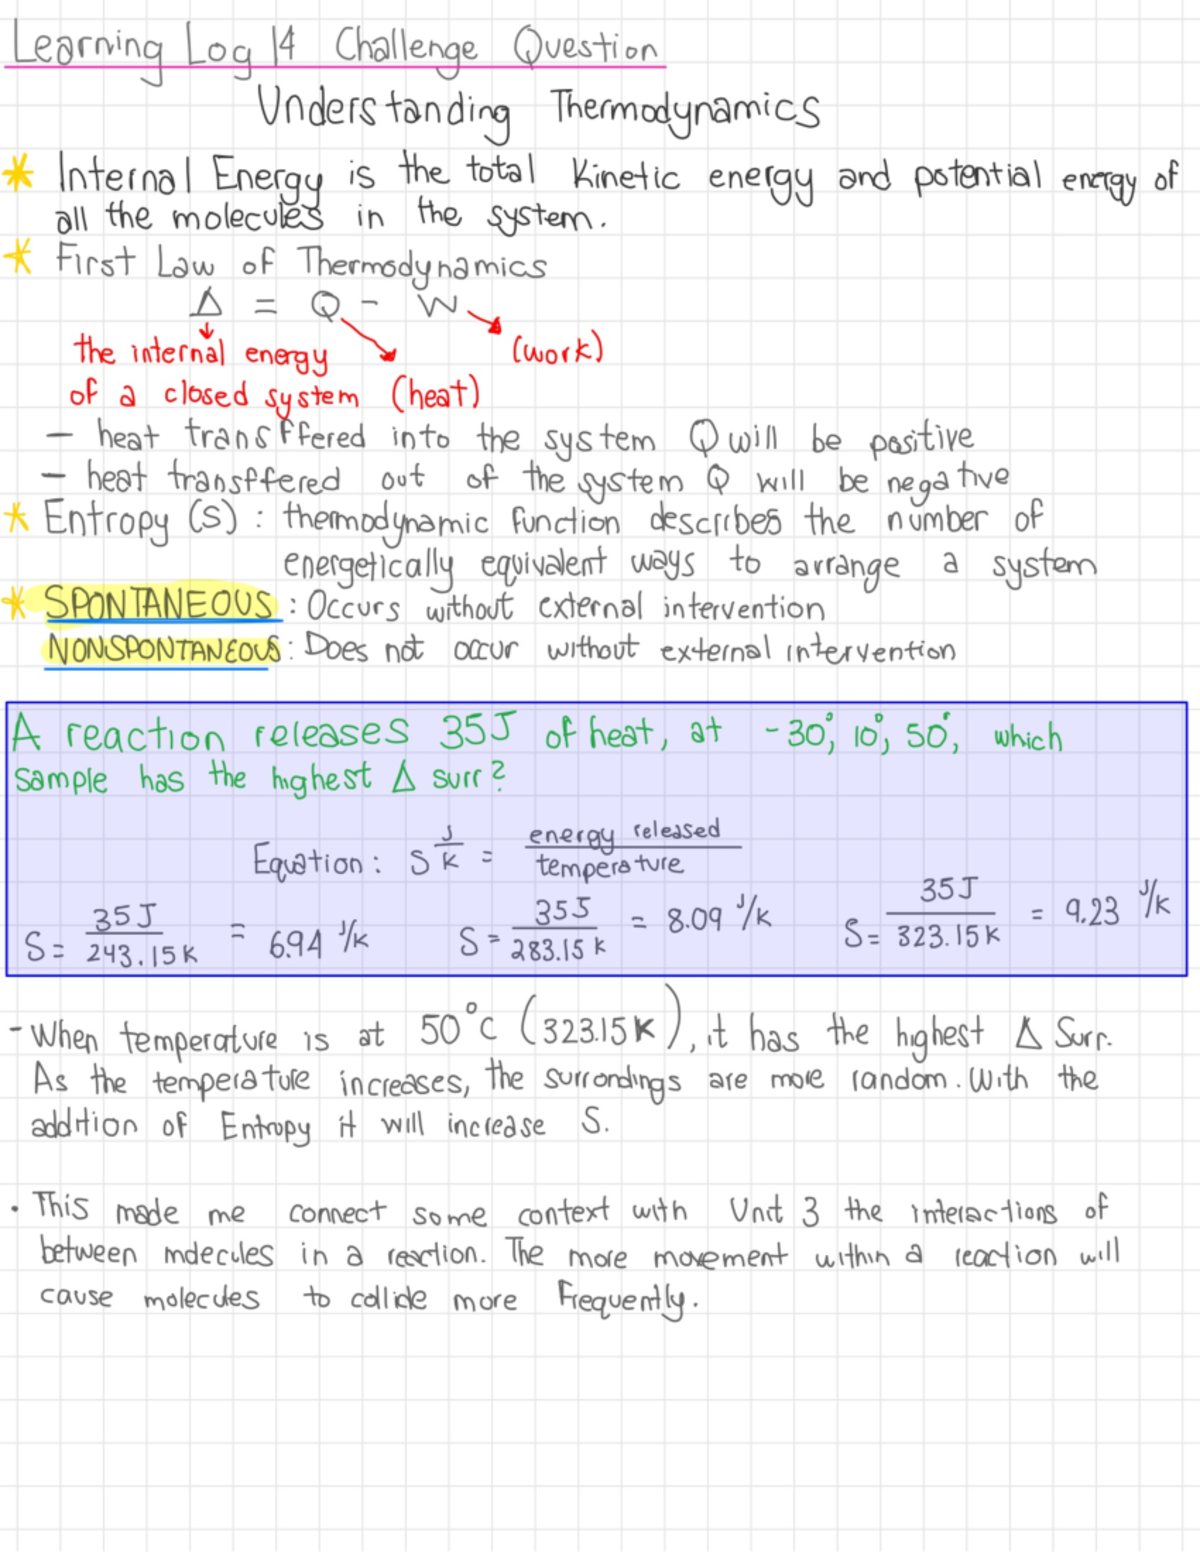 Learning Log 14 Challenge Question
Understanding Thermodynamics
* Internal Energy is the total kinetic energy and potential energy of
all the molecules in the system.
* First Law of Thermodynamics
Δ = Q - W
the internal energy (work)
of a closed system (heat)
- heat transffered into the system Q will be positive
- heat transffered out of the system Q will be negative
* Entropy (S) : thermodynamic function describes the number of
energetically equivalent ways to arrange a system
* SPONTANEOUS : Occurs without external intervention
NONSPONTANEOUS : Does not occur without external intervention
A reaction releases 35J of heat, at -30°, 10°, 50°, which
sample has the highest Δ surr?
Equation: S J/K = energy released / temperature
S = 35J / 243.15K = 6.94 J/K S = 35J / 283.15K = 8.09 J/K S = 35J / 323.15K = 9.23 J/K
- When temperature is at 50°C (323.15K), it has the highest Δ Surr.
As the temperature increases, the surrondings are more random. With the
addition of Entropy it will increase S.
• This made me connect some context with Unit 3 the interactions of
between molecules in a reaction. The more movement within a reaction will
cause molecules to collide more frequently.